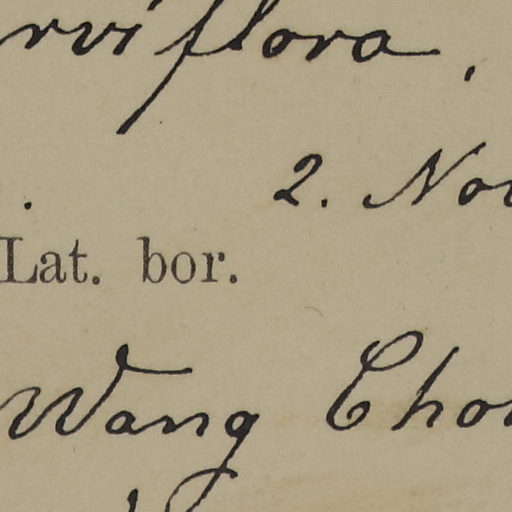 rviflora,
. 2. Nov
Lat. bor.
Wang Chon